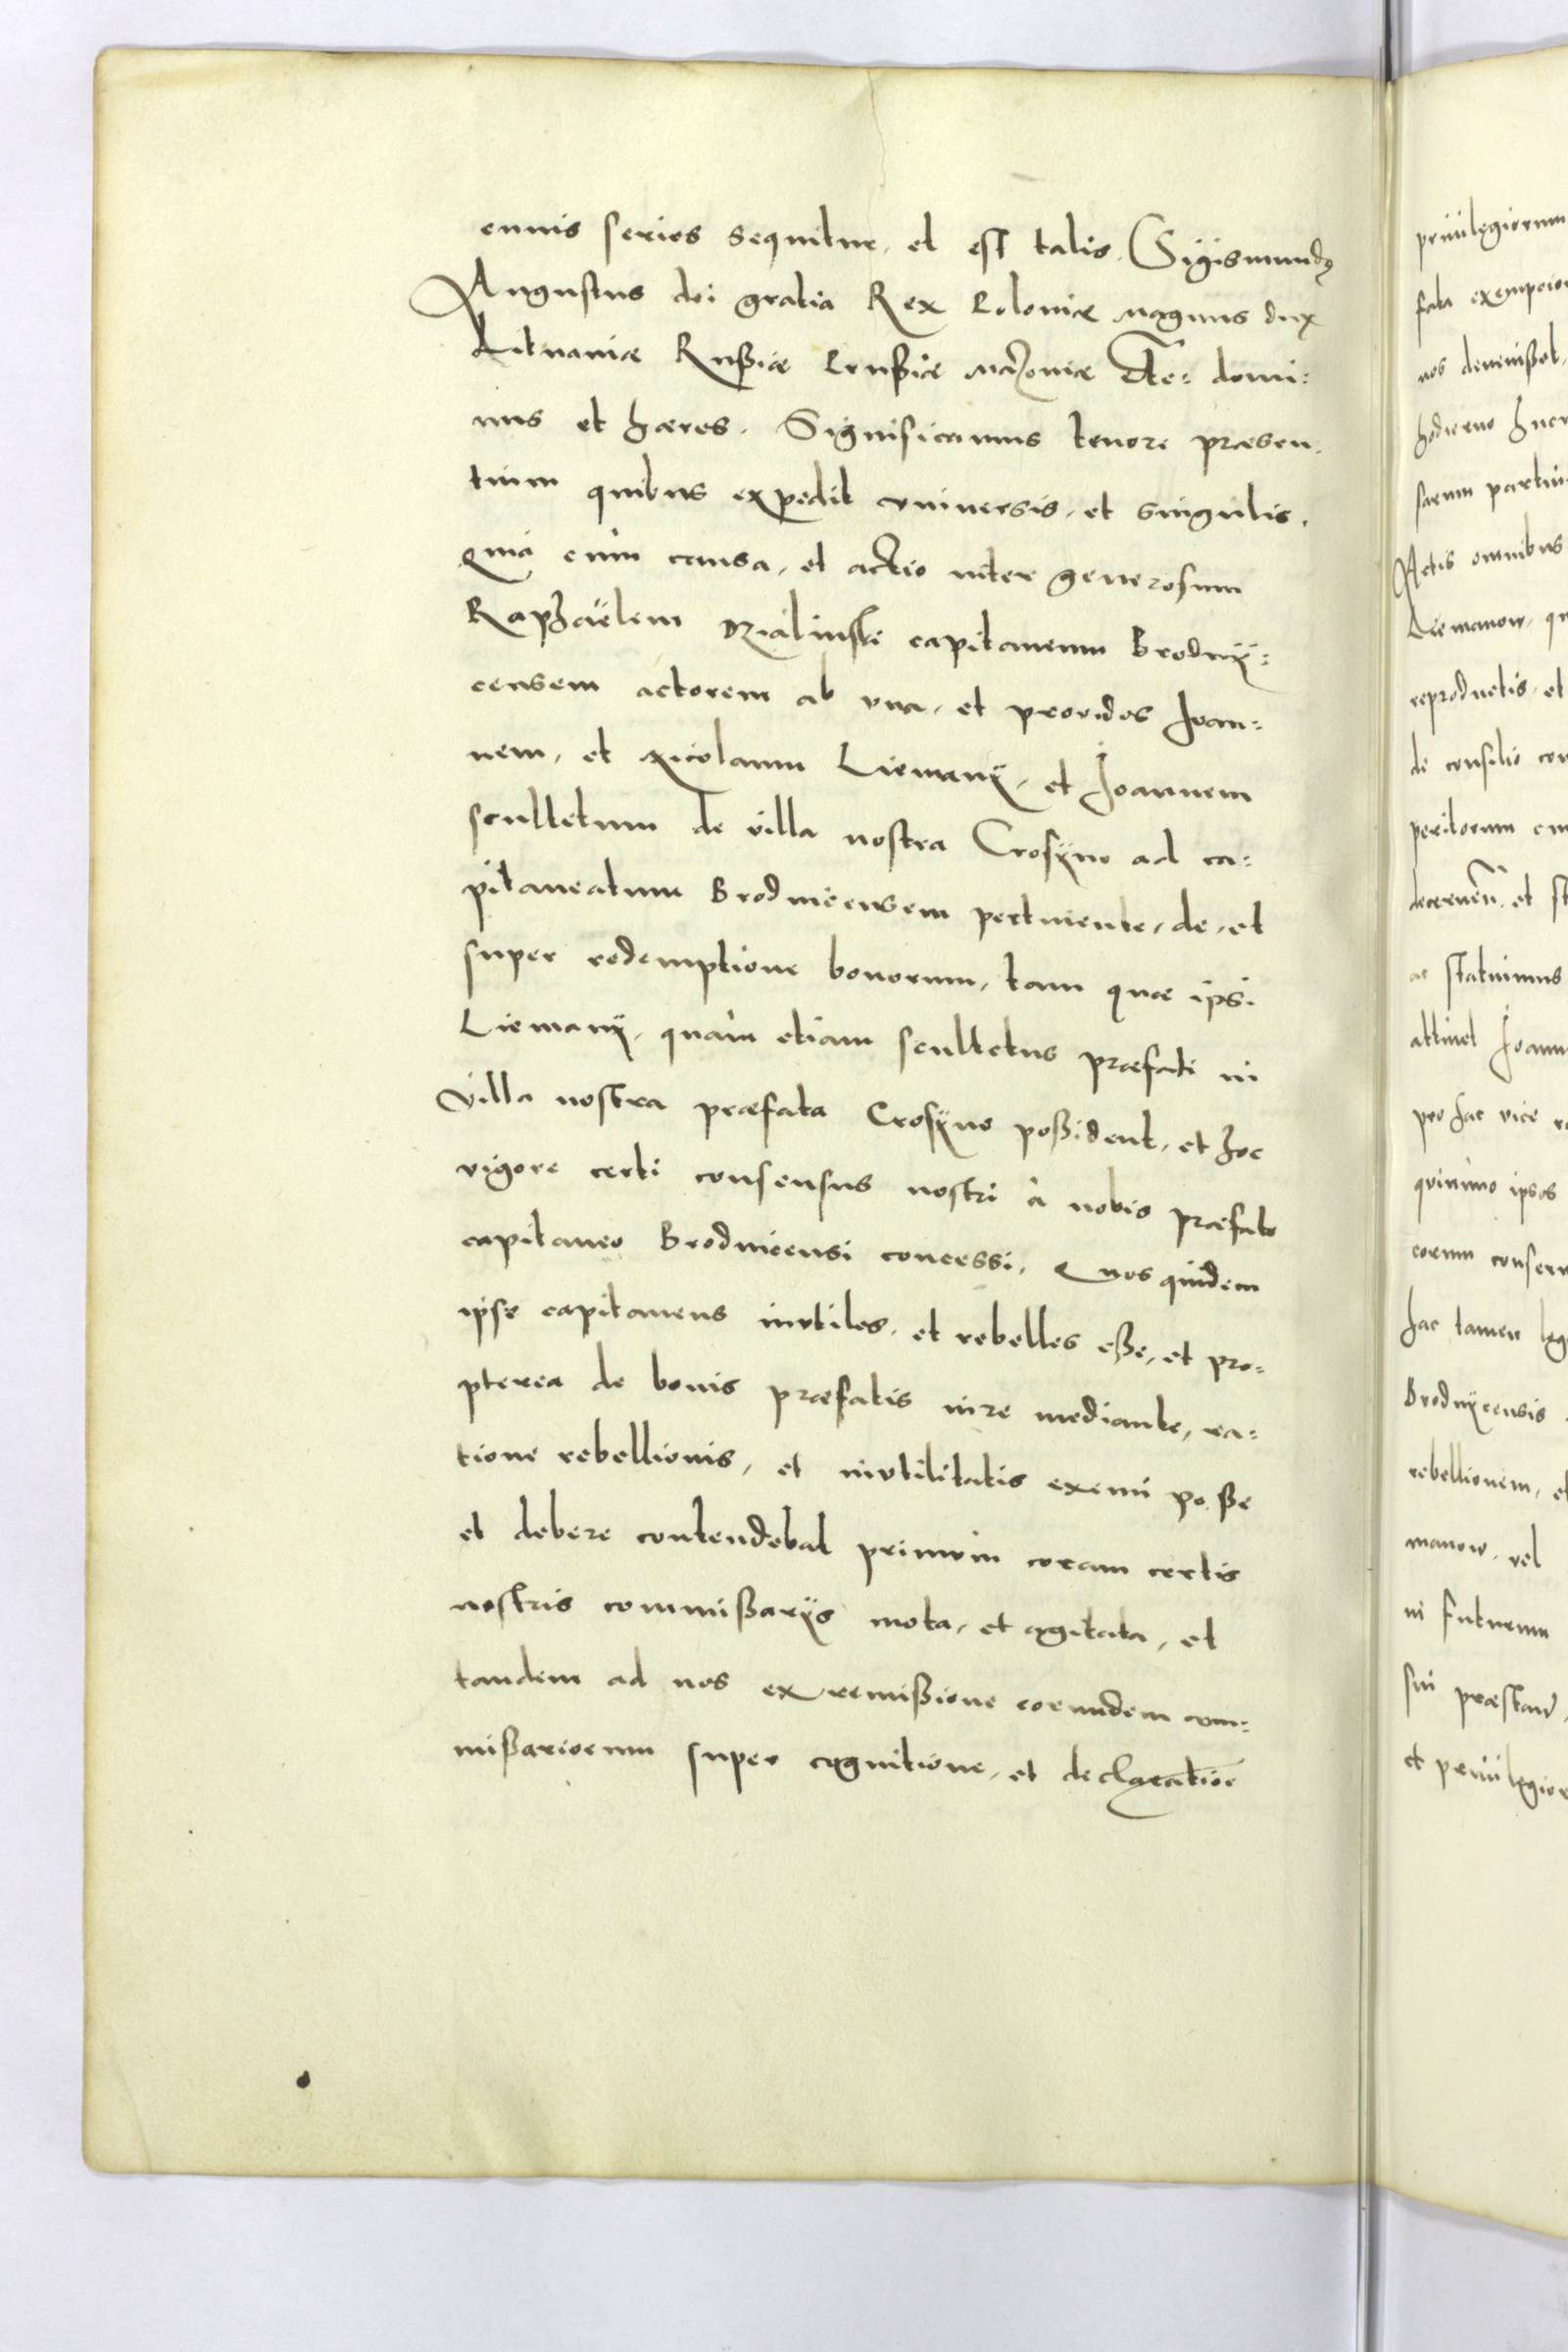 cuius series sequitur, et est talis. Sigismundus
Augustus dei gratia Rex Poloniæ Magnus dux
Lituaniæ Rußiæ Prußiæ Mazouiæ &c. domi=
nus et hæres. Significamus tenore præsen=
tium quibus expedit vniuersis, et singulis.
Quia cum causa, et actio inter generosum
Raphaëlem Dzialinski capitaneum Brodnÿ=
censem actorem ab vna, et prouidos Joan=
nem, et Nicolaum Liemanÿ, et Joannem
scultetum de villa nostra Crosÿno ad ca=
pitaneatum Brodnicensem pertinente, de, et
super redemptione bonorum, tam quæ ipsi
Liemanÿ, quàm etiam scultetus præfati in
villa nostra præfata Crosÿno poßident, et hoc
vigore certi consensus nostri à nobis præfato
capitaneo Brodnicensi concessi. Quos quidem
ipse capitaneus inutiles, et rebelles eße, et pro=
pterea de bonis præfatis iure mediante, ra=
tione rebellionis, et inutilitatis eximi poße
et debere contendebat primùm coram certis
nostris commißarijs mota, et agitata, et
tandem ad nos ex remißione eorundem com=
mißariorum super cognitione, et declaratione

priuilegiorum
fata exempcio
nos deuenißet,
hodierno huc
sarum partiu
Actis omnibus
Liemanow, qu
reproductis, et
de consilio con
peritorum
decernen. et st
ac statuimus
attinet Joann
pro hac vice
quinimo ipsos
eorum conseru
hac tamen leg
Brodnÿcensis
rebellionem, et
manow, vel
in futurum
sui præstand.
et priuilegior